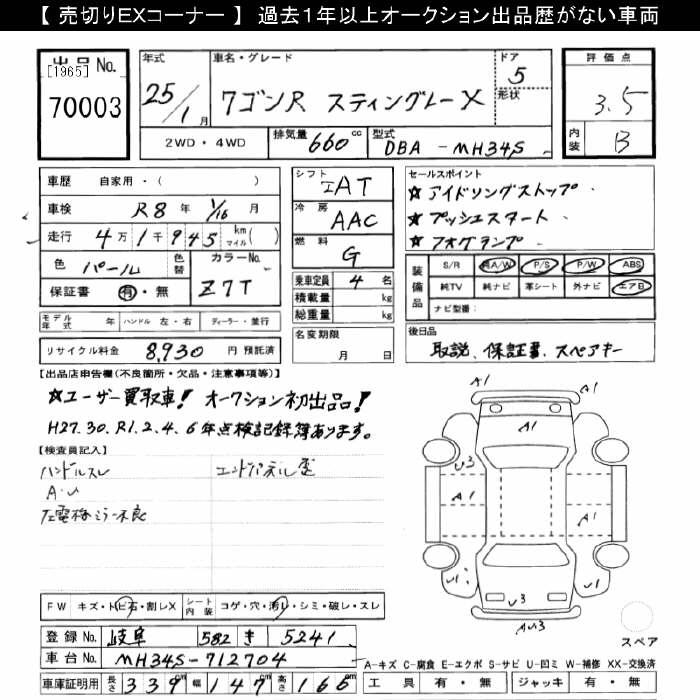 【 売切りEXコーナー 】 過去１年以上オークション出品歴がない車両
出品No.
[1965]
70003
年式
25/1月
車名・グレード
ワゴンR スティングレーX
ドア
5
形状
評価点
3.5
内装
B
2WD・4WD
排気量 660 cc
型式 DBA-MH34S
車歴 自家用・( )
車検 R8年 1/16月
走行 4万1千945 km マイル( )
色 パール 色替
カラーNo. Z7T
保証書 有・無
シフト IAT
冷房 AAC
燃料 G
乗車定員 4名
積載量 kg
総重量 kg
名変期限
月 日
セールスポイント
☆アイドリングストップ
☆プッシュスタート
☆フォグランプ
装備品
S/R 純A/W P/S P/W ABS
純TV 純ナビ 革シート 外ナビ エアB
ナビ型番:
モデル年式 年 ハンドル 左・右 ディーラー・並行
リサイクル料金 8,930 円 預託済
後日品
取説、保証書、スペアキー
【出品店申告欄(不良箇所・欠品・注意事項等)】
☆ユーザー買取車! オークション初出品!
H27.30.R1.2.4.6年点検記録簿あります。
【検査員記入】
ハンドルスレ
A・U
左電格ミラー不良
A1
A1
U3
A1
A1
A1
U1
U3
A1
AU3
スペア
FW キズ・トビ石・割レX シート内装 コゲ・穴・汚レ・シミ・破レ・スレ
登録No. 岐阜 582 き 5241
車台No. MH34S-712704
車庫証明用 長さ 339cm 幅 147cm 高さ 166cm
A-キズ C-腐食 E-エクボ S-サビ U-凹ミ W-補修 XX-交換済
工具 有・無 ジャッキ 有・無